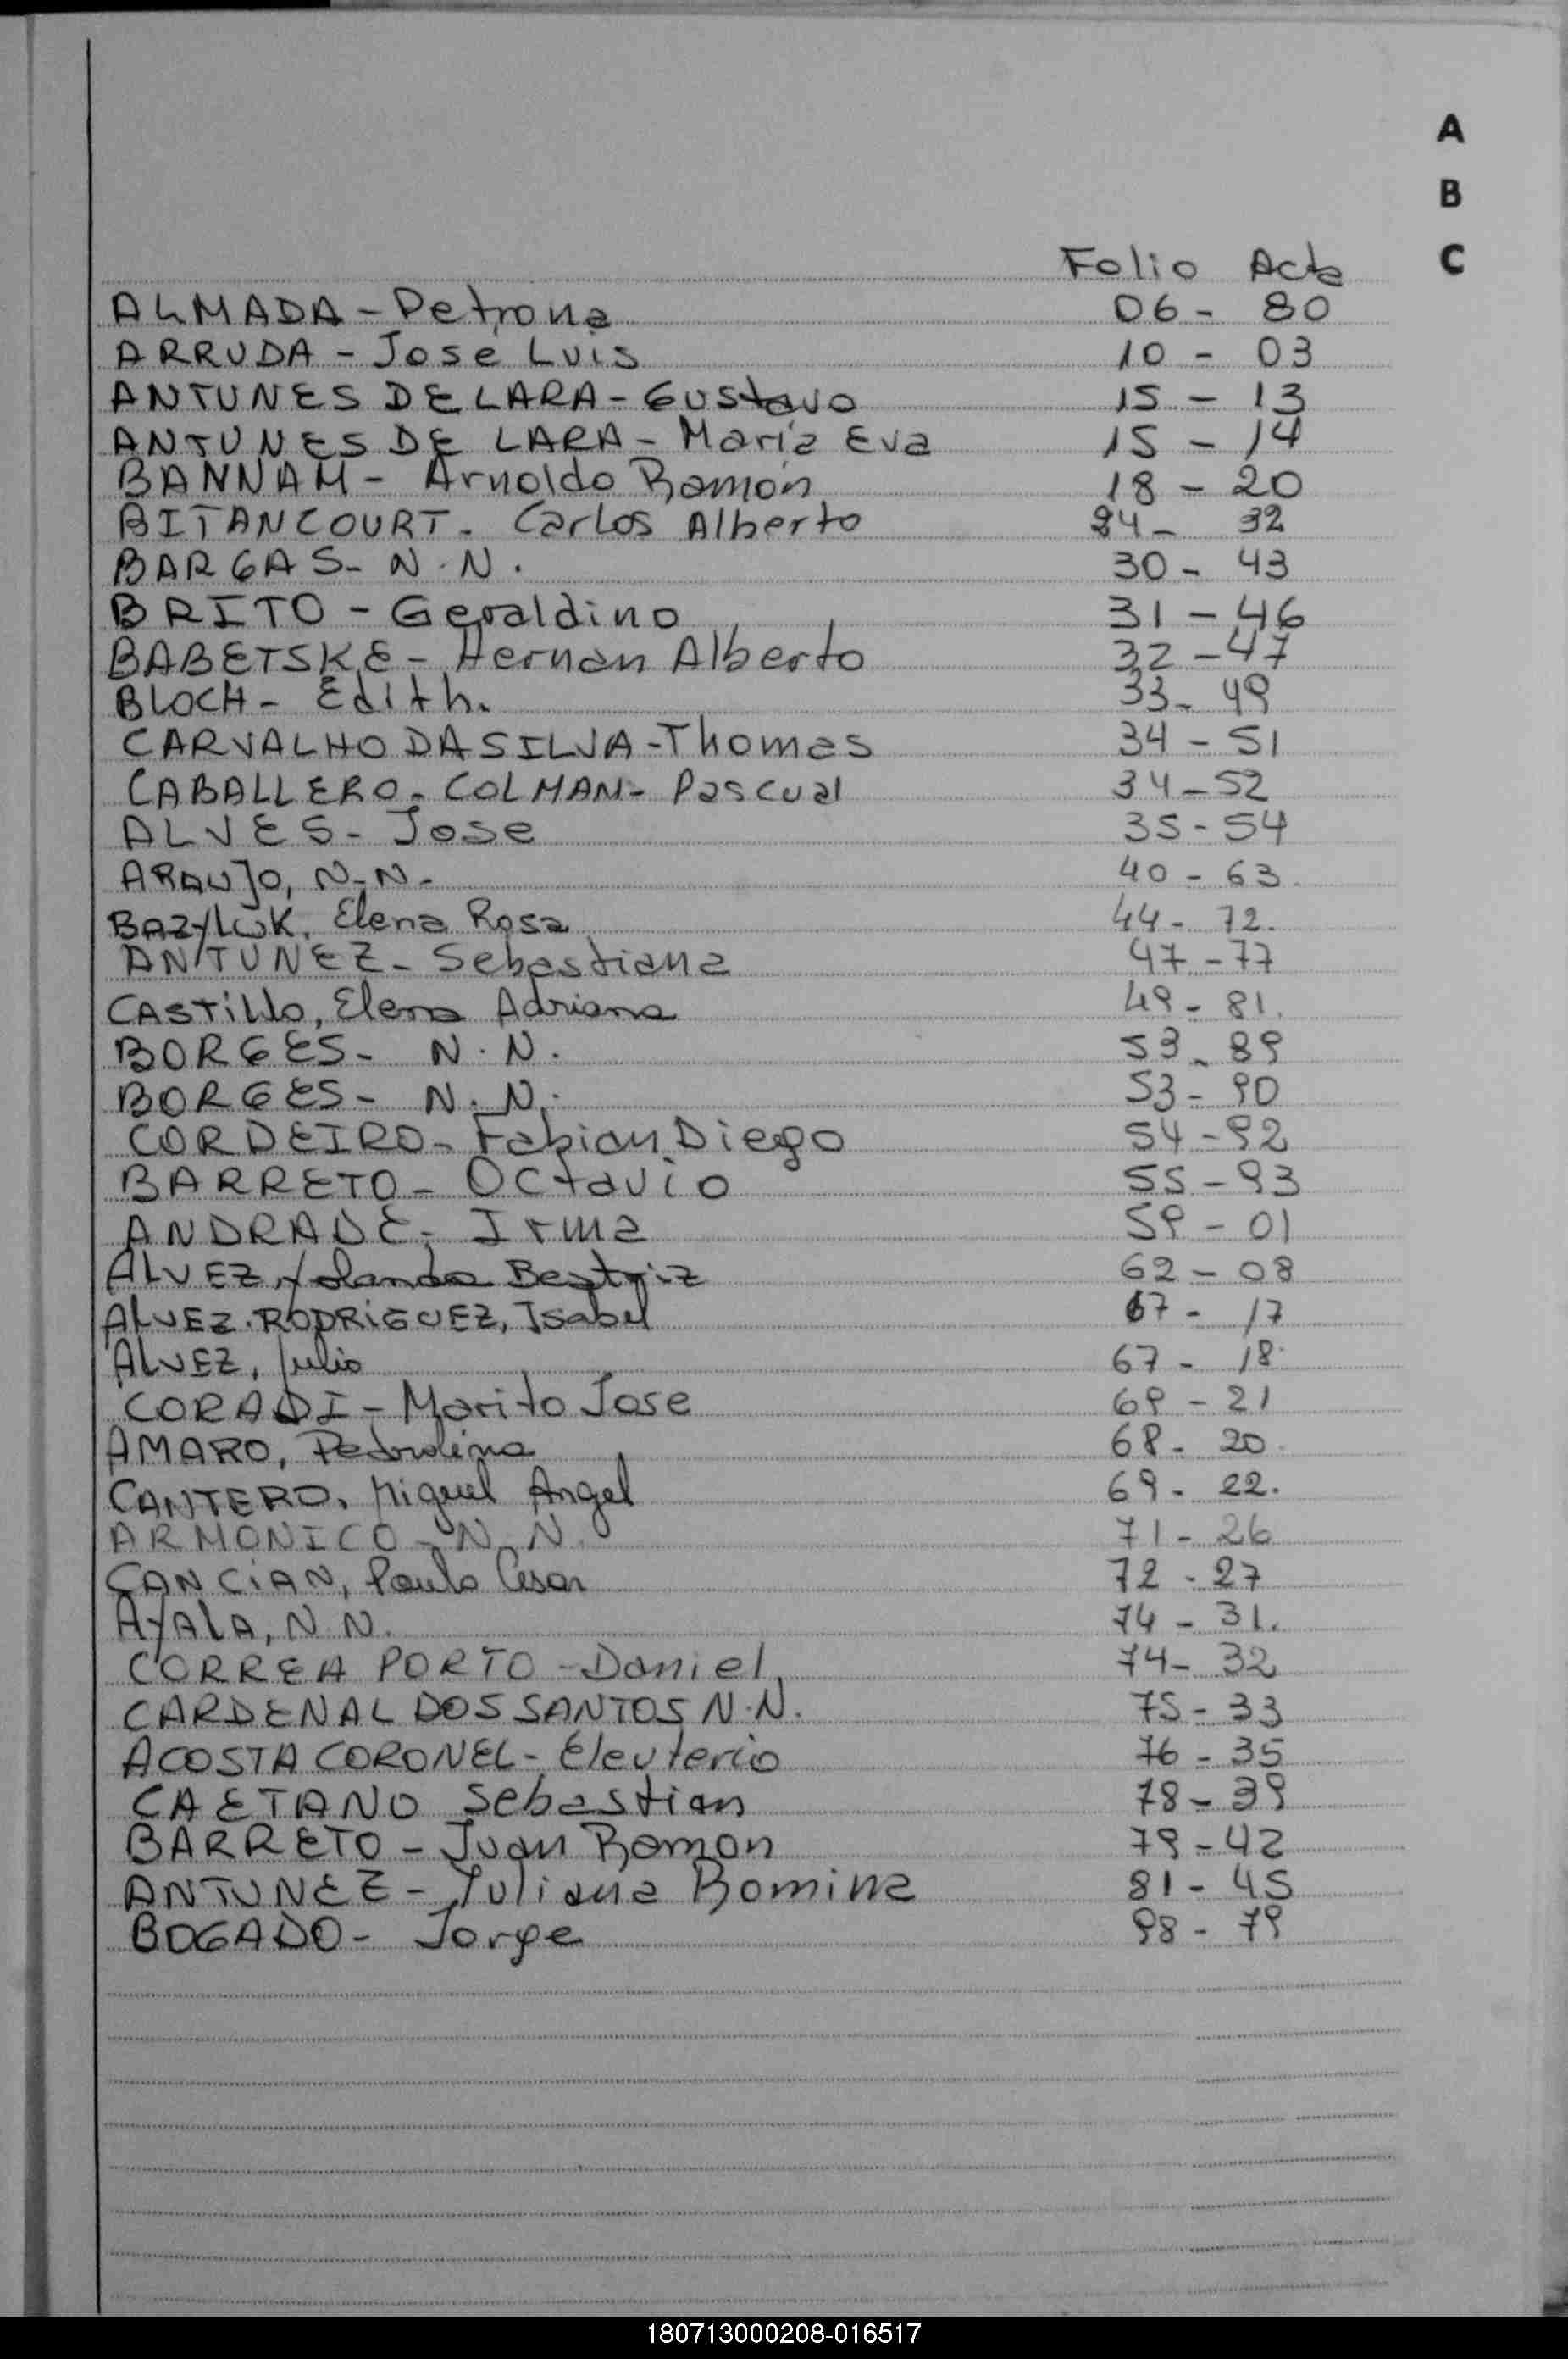 A
B
C
Folio Acta
ALMADA - Petrona 06 - 80
ARRUDA - José Luis 10 - 03
ANTUNES DE LARA - Gustavo 15 - 13
ANTUNES DE LARA - María Eva 15 - 14
BANNAM - Arnoldo Ramón 18 - 20
BITANCOURT - Carlos Alberto 24 - 32
BARGAS - N.N. 30 - 43
BRITO - Geraldino 31 - 46
BABETSKE - Hernan Alberto 32 - 47
BLOCH - Edith. 33 - 49
CARVALHO DA SILVA - Thomas 34 - 51
CABALLERO - COLMAN - Pascual 34 - 52
ALVES - Jose 35 - 54
ARAUJO, N.N. 40 - 63.
BAZYLUK, Elena Rosa 44 - 72.
ANTUNEZ - Sebastiana 47 - 77
CASTILLO, Elena Adriana 49 - 81.
BORGES - N.N. 53 - 89
BORGES - N.N. 53 - 90
CORDEIRO - Fabian Diego 54 - 92
BARRETO - Octavio 55 - 93
ANDRADE - Irma 59 - 01
ALVEZ, Yolanda Beatriz 62 - 08
ALVEZ RODRIGUEZ, Isabel 67 - 17
ALVEZ, Julio 67 - 18
CORADI - Marito Jose 69 - 21
AMARO, Pedrolina 68 - 20
CANTERO, Miguel Angel 69 - 22.
ARMONICO - N.N. 71 - 26
CANCIAN, Paulo Cesar 72 - 27
AYALA, N.N. 74 - 31.
CORREA PORTO - Daniel 74 - 32
CARDENAL DOS SANTOS N.N. 75 - 33
ACOSTA CORONEL - Eleuterio 76 - 35
CAETANO Sebastian 78 - 39
BARRETO - Juan Ramon 79 - 42
ANTUNEZ - Juliana Romina 81 - 45
BOGADO - Jorge 98 - 79
180713000208-016517